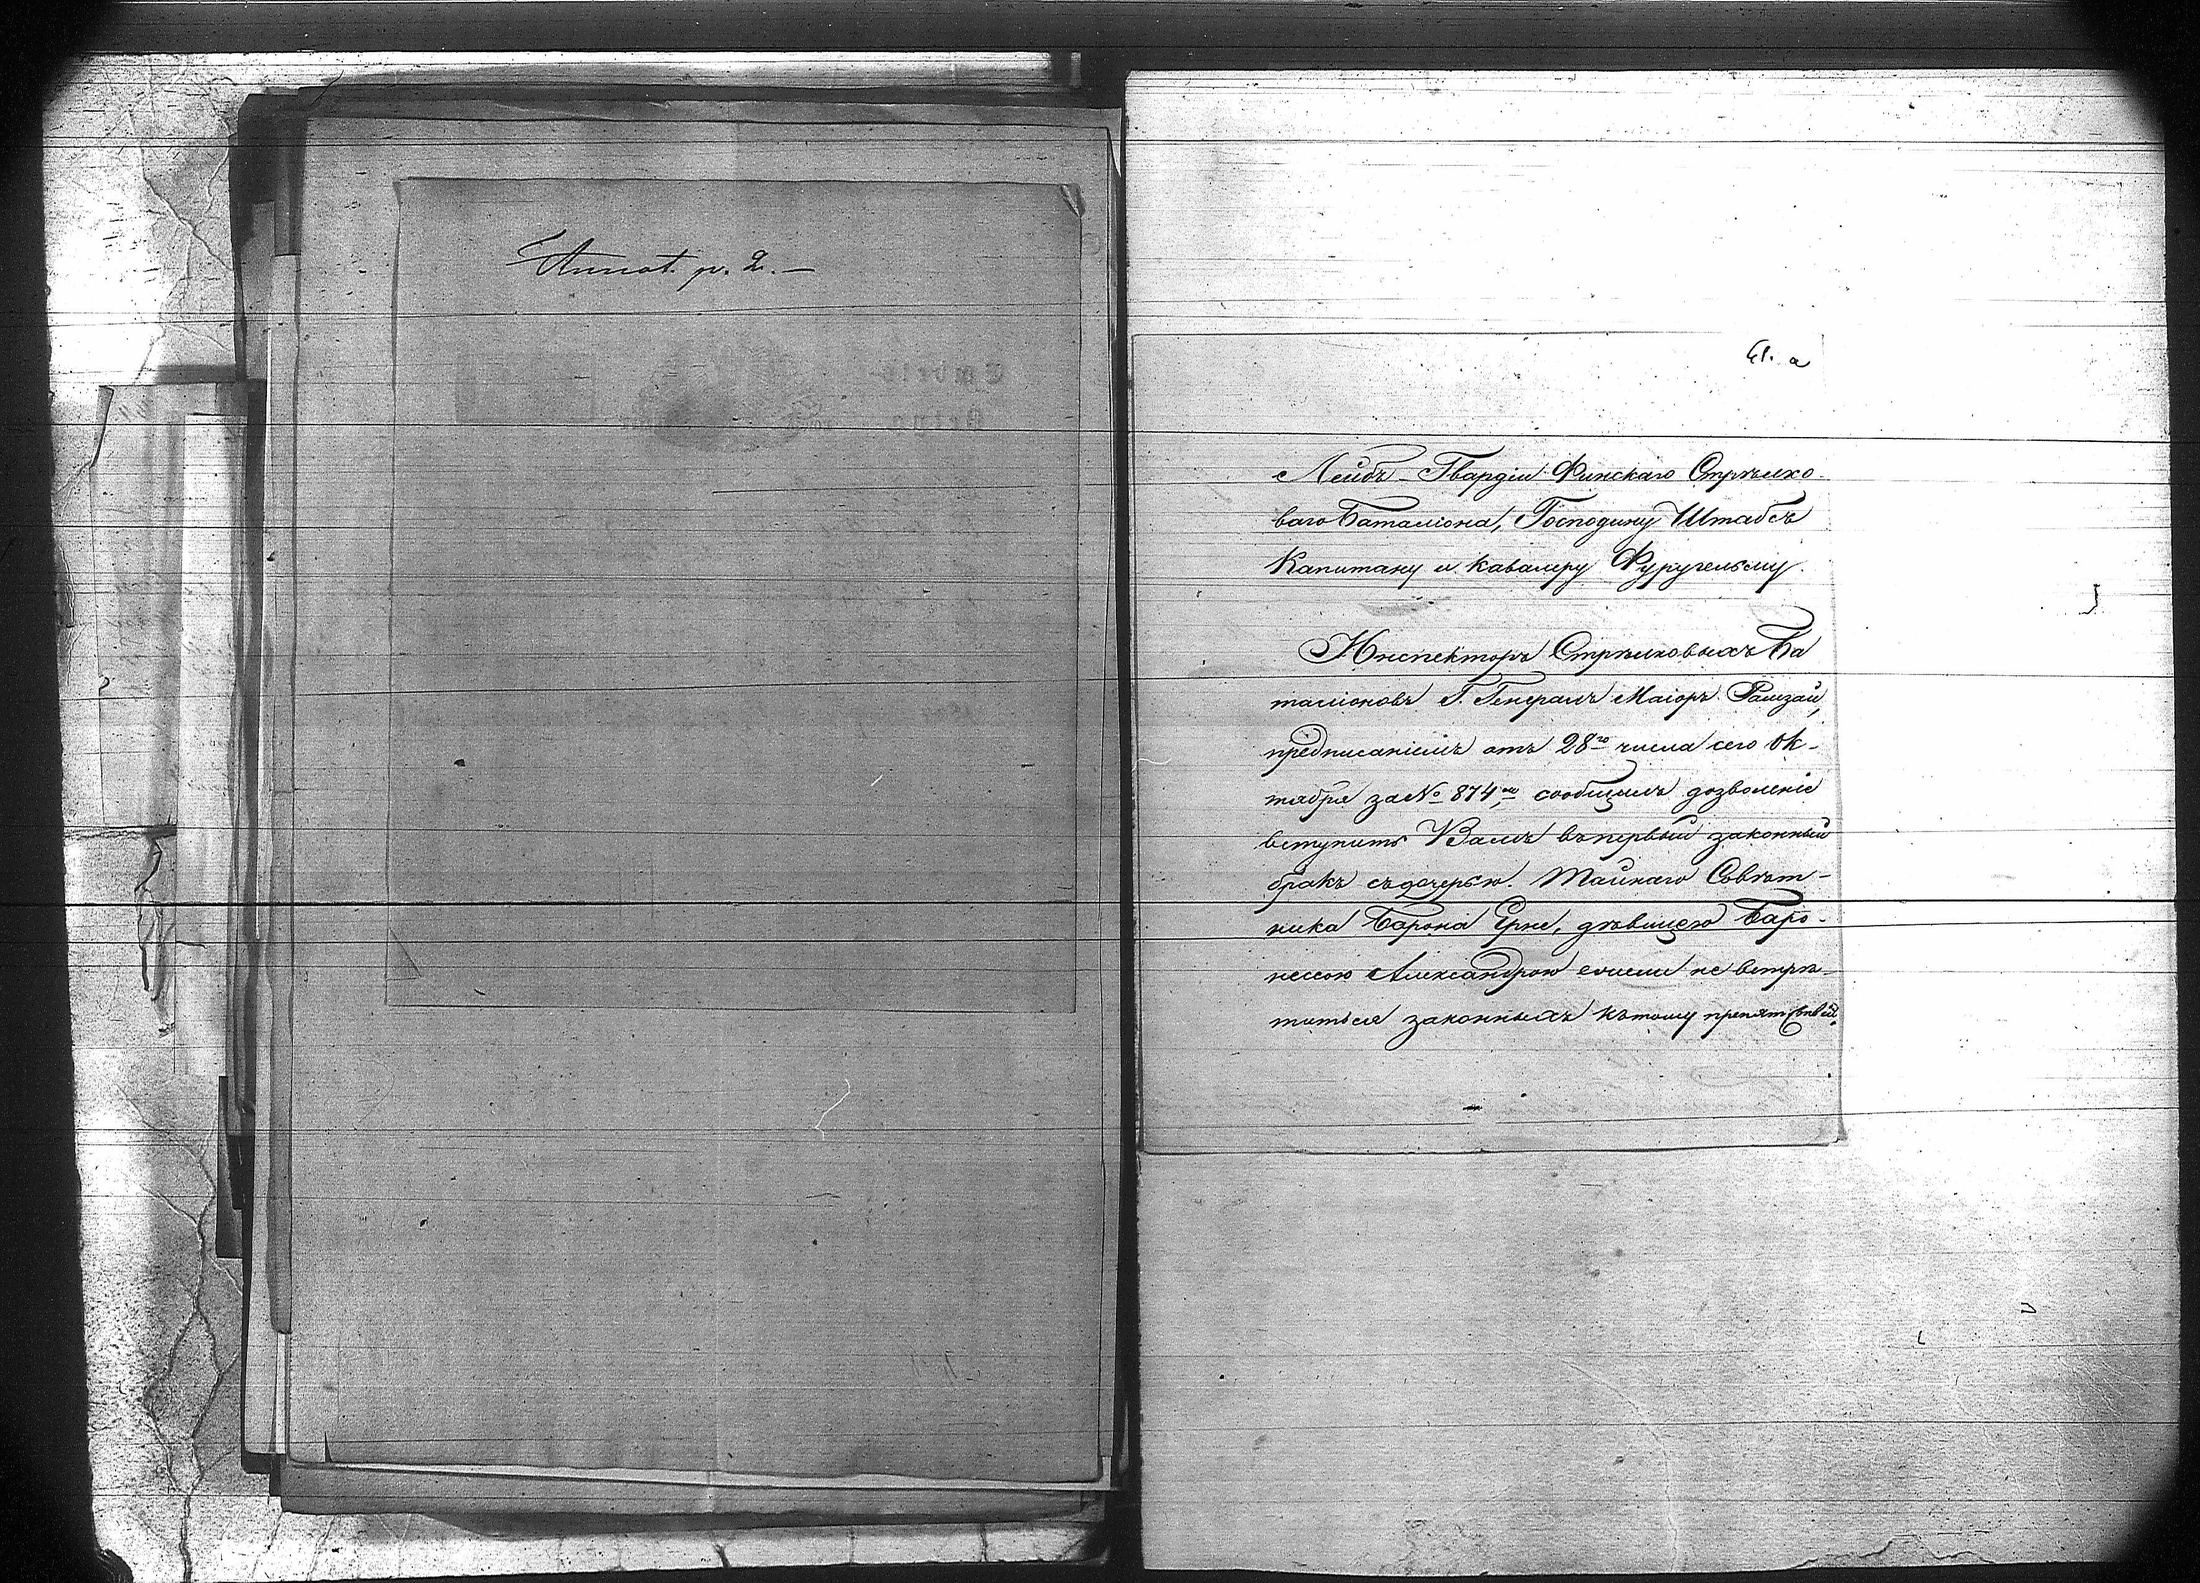 Annot. p. 2. —
41. a
Лейбъ-Гвардіи Финскаго Стрѣлко-
ваго Баталіона, Господину Штабсъ
Капитану и Кавалеру Фуругельму.
Инспекторъ Стрѣлковыхъ Ба
таліоновъ Г. Генералъ Маіоръ Рамзай,
предписаніемъ отъ 28го числа сего Ок-
тября за № 874, сообщилъ дозволеніе
вступить Вамъ въ первый законный
бракъ съ дочерью Тайнаго Совѣт-
ника Барона Ерне, дѣвицею Баро-
нессою Александрою если не встрѣ-
титься законныхъ къ тому препятствій.